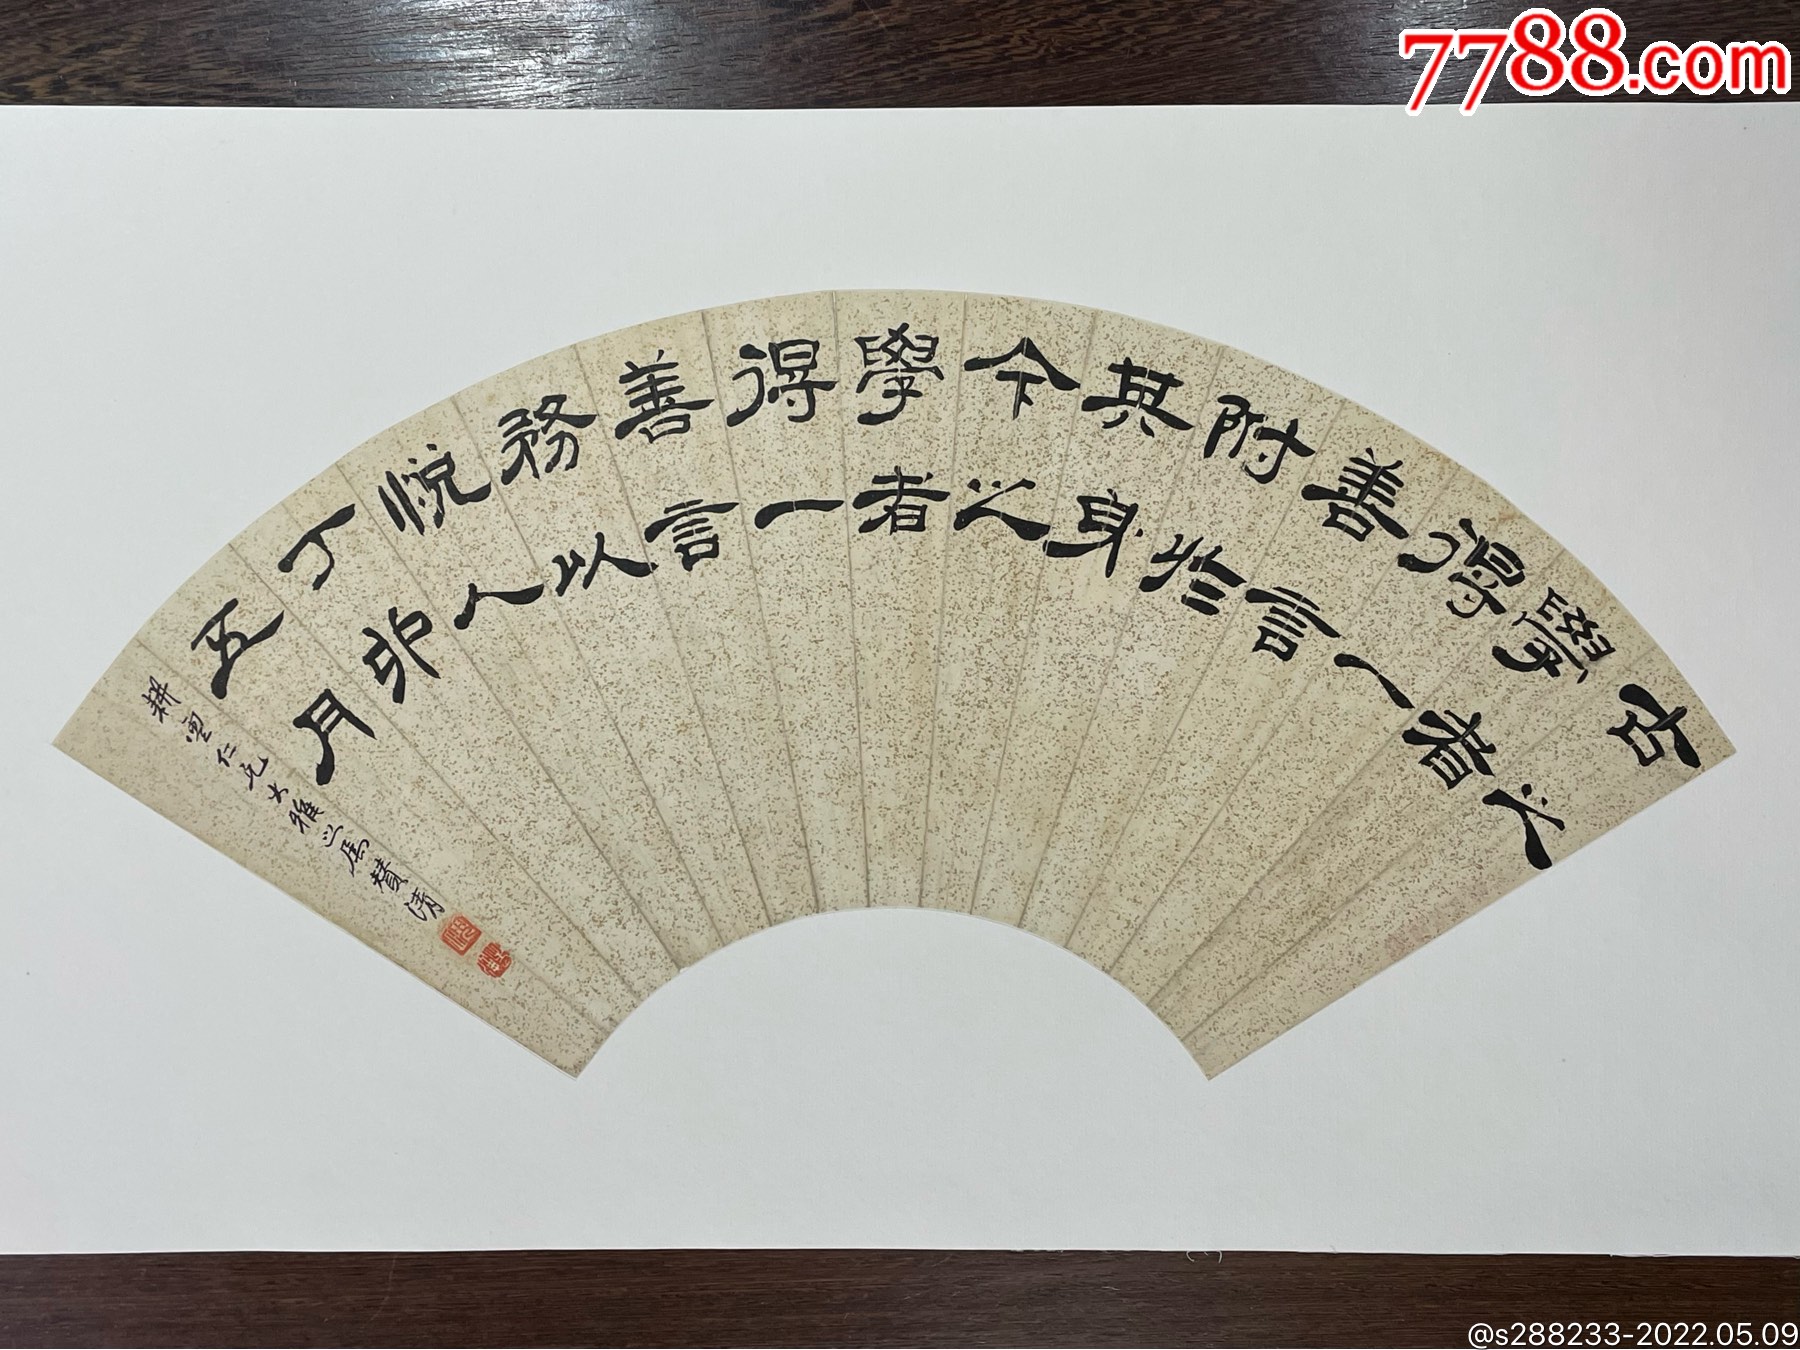 7788.com
古之
學者
得一
善言
附於
其身
今之
學者
得一
善言
務以
悅人
丁卯
五月
耕雲仁兄大雅之屬
@s288233-2022.05.09